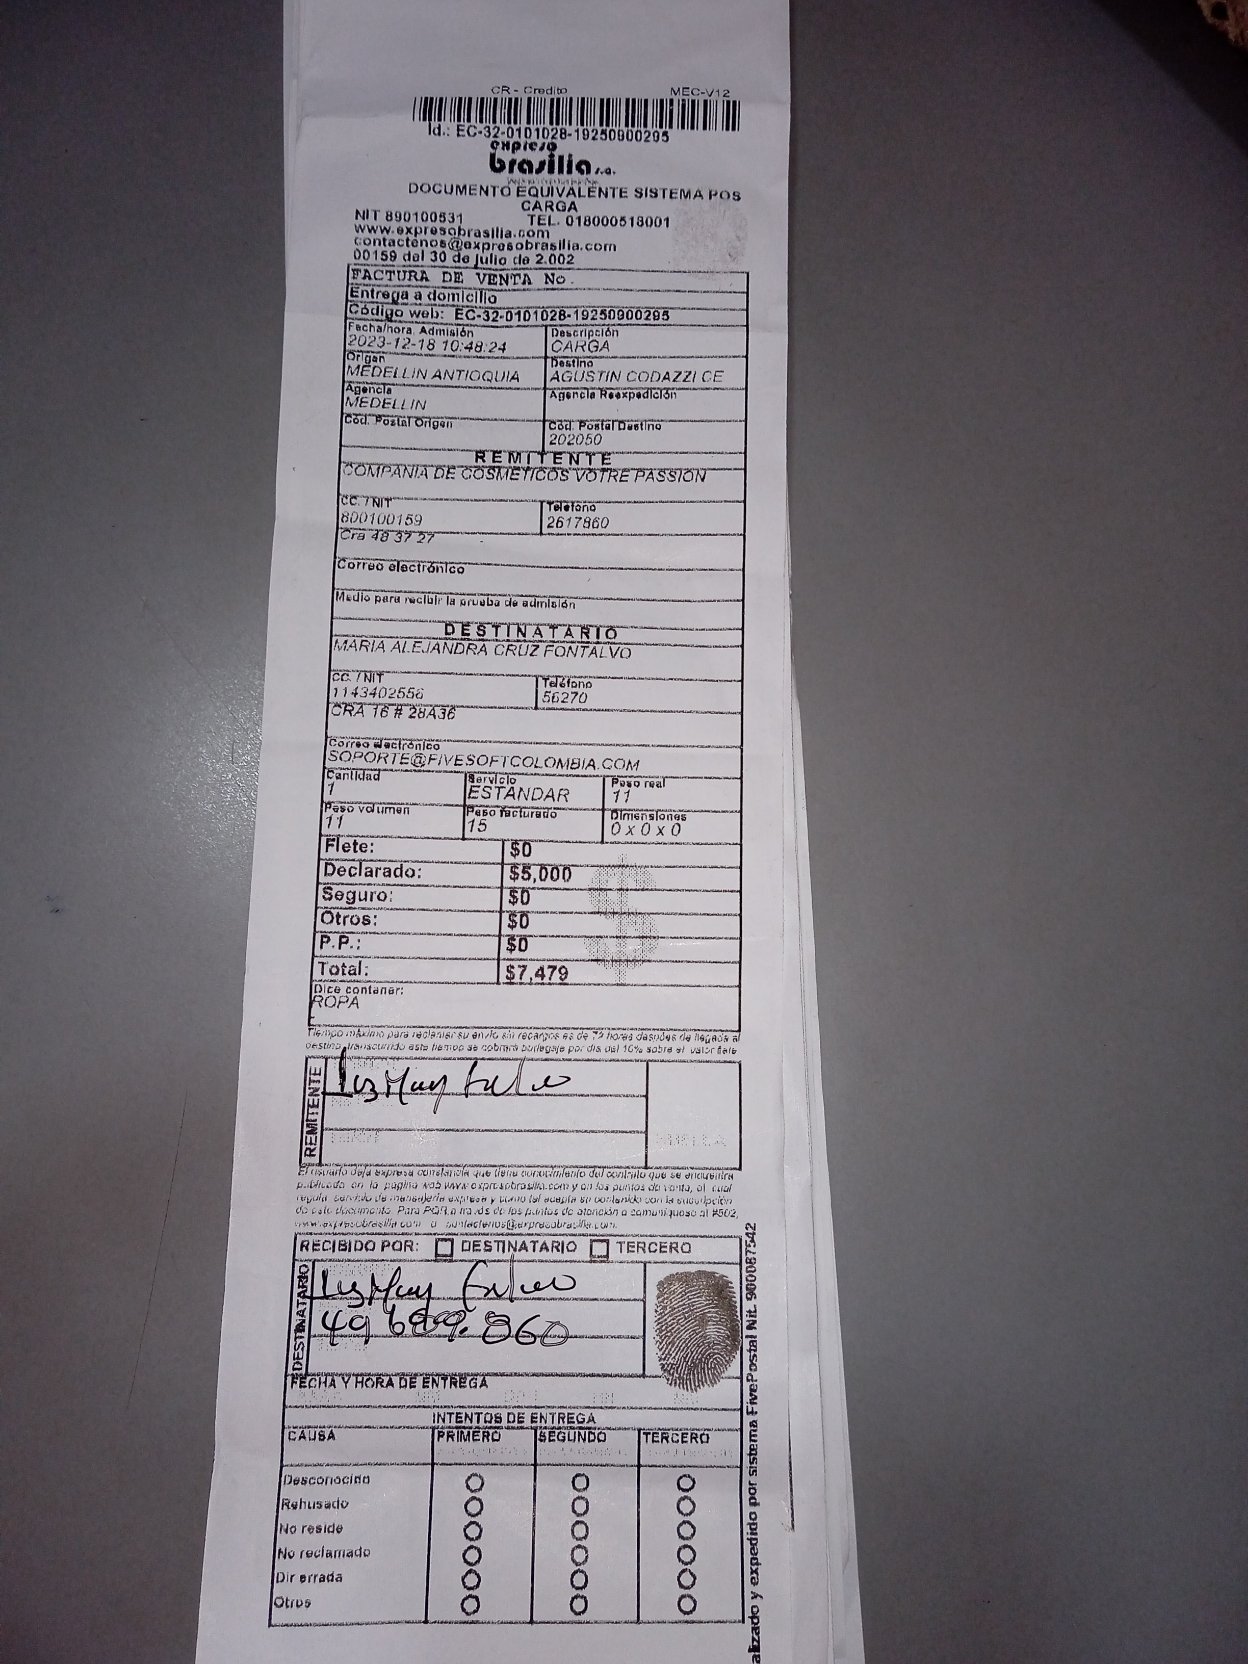 CR - Credito MEC-V12
Id.: EC-32-0101028-19250900295
expreso
brasilia s.a.
DOCUMENTO EQUIVALENTE SISTEMA POS
CARGA
NIT 890100531 TEL. 018000518001
www.expresobrasilia.com
contactenos@expresobrasilia.com
00159 del 30 de julio de 2.002
FACTURA DE VENTA No.
Entrega a domicilio
Código web: EC-32-0101028-19250900295
Fecha/hora. Admisión Descripción
2023-12-18 10:48:24 CARGA
Origen Destino
MEDELLIN ANTIOQUIA AGUSTIN CODAZZI CE
Agencia Agencia Reexpedición
MEDELLIN
Cód. Postal Origen Cód. Postal Destino
202050
REMITENTE
COMPANIA DE COSMETICOS VOTRE PASSION
CC. / NIT Teléfono
800100159 2617860
Cra 48 37 27
Correo electrónico
Medio para recibir la prueba de admisión
DESTINATARIO
MARIA ALEJANDRA CRUZ FONTALVO
CC. / NIT Teléfono
1143402556 56270
CRA 16 # 28A36
Correo electrónico
SOPORTE@FIVESOFTCOLOMBIA.COM
Cantidad Servicio Peso real
1 ESTANDAR 11
Peso volumen Peso facturado Dimensiones
11 15 0 x 0 x 0
Flete: $0
Declarado: $5,000
Seguro: $0
Otros: $0
P.P.: $0
Total: $7,479
$
Dice contener:
ROPA
Tiempo máximo para reclamar su envío sin recargos es de 72 horas después de llegada al
destino, transcurrido este tiempo se cobrará bodegaje por día del 10% sobre el valor flete
REMITENTE
HUELLA
El usuario deja expresa constancia que tiene conocimiento del contrato que se encuentra
publicado en la pagina web www.expresobrasilia.com y en los puntos de venta, el cual
regula servicio de mensajería expresa y como tal acepta su contenido con la suscripción
de este documento. Para PQR a través de los puntos de atención o comuníquese al #502,
www.expresobrasilia.com o contactenos@expresobrasilia.com.
RECIBIDO POR: DESTINATARIO TERCERO
DESTINATARIO
49 689.860
FECHA Y HORA DE ENTREGA
INTENTOS DE ENTREGA
CAUSA PRIMERO SEGUNDO TERCERO
Desconocido
Rehusado
No reside
No reclamado
Dir errada
Otros
alizado y expedido por sistema FivePostal Nit. 900087542